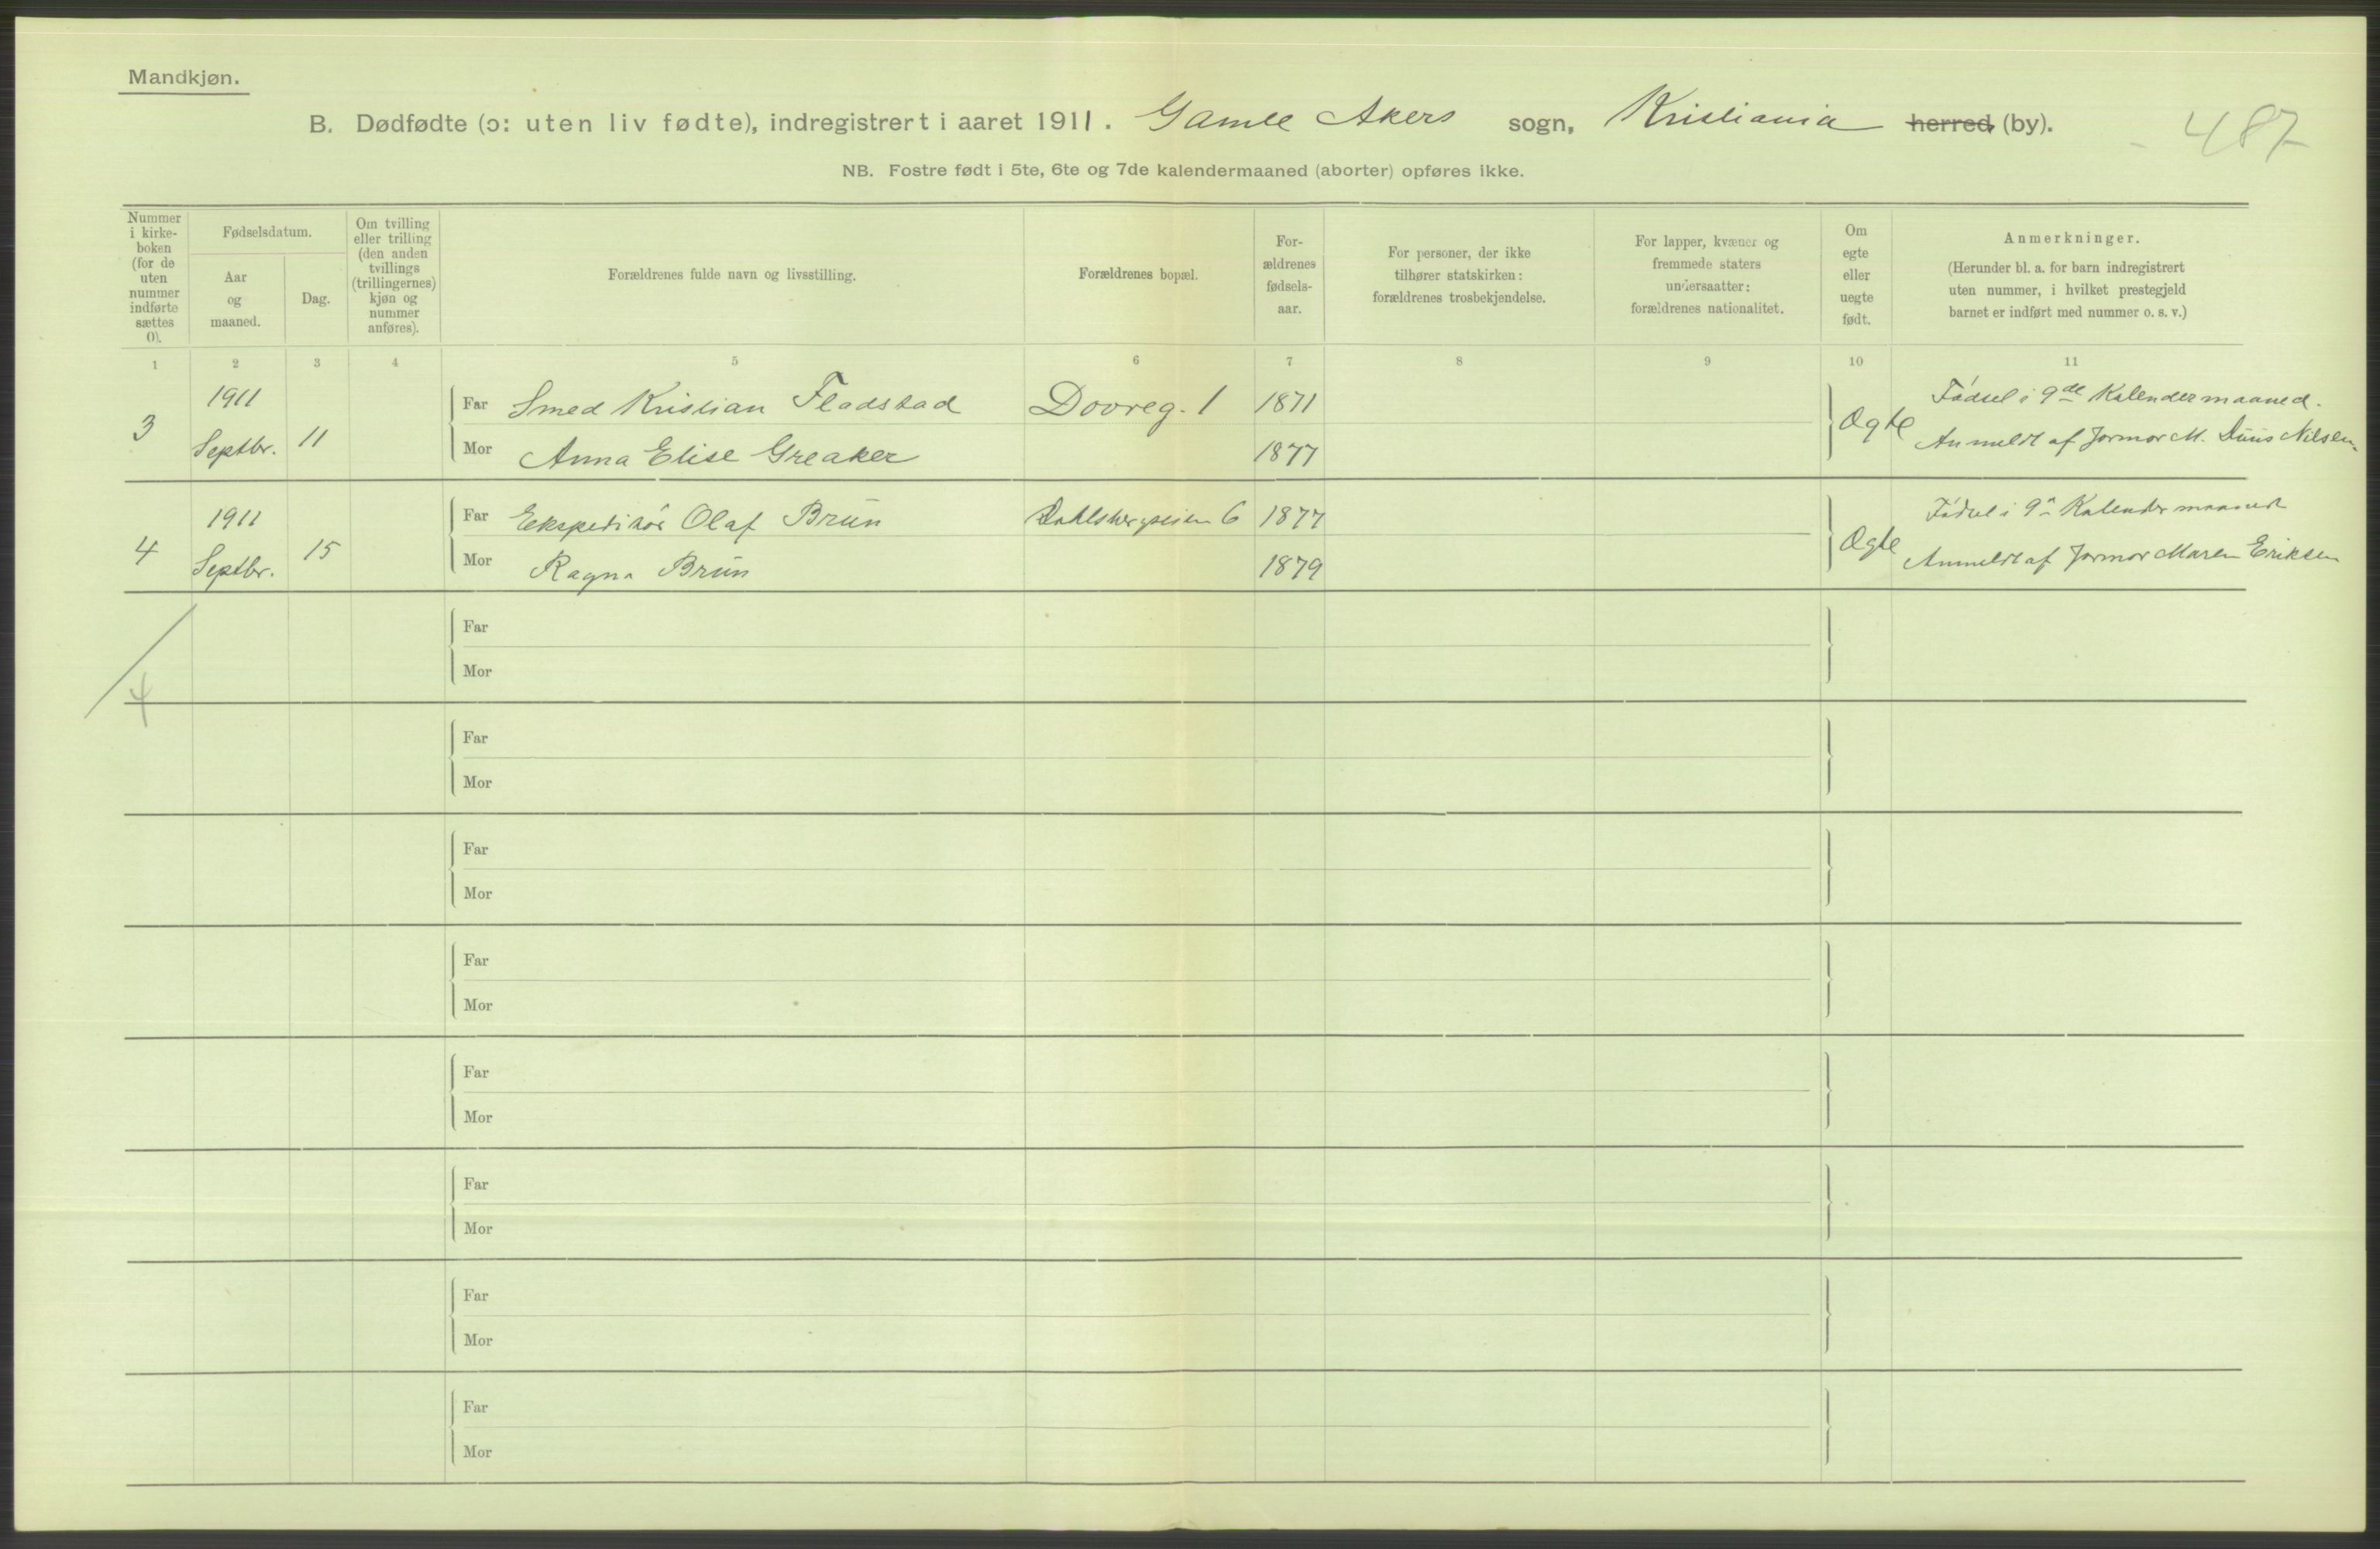 Mandkjøn.
B. Dødfødte (ɔ: uten liv fødte), indregistrert i aaret 1911. Gamle Akers sogn, Kristiania herred, (by). 487
NB. Fostre født i 5te, 6te og 7de kalendermaaned (aborter) opføres ikke.
Nummer i kirke-boken (for de uten nummer indførte sættes 0).
Fødselsdatum.
Aar og maaned.
Dag.
Om tvilling eller trilling (den anden tvillings (trillingernes) kjøn og nummer anføres).
Forældrenes fulde navn og livsstilling.
Forældrenes bopæl.
For-ældrenes fødsels-aar.
For personer, der ikke tilhører statskirken: forældrenes trosbekjendelse.
For lapper, kvæner og fremmede staters undersaatter: forældrenes nationalitet.
Om egte eller uegte født.
Anmerkninger.
(Herunder bl. a. for barn indregistrert uten nummer, i hvilket prestegjeld barnet er indført med nummer o. s. v.)
1 2 3 4 5 6 7 8 9 10 11
3 1911 Septbr. 11
Far Smed Kristian Fladstad Dovreg. 1 1871
Mor Anna Elise Greaker 1877
Ægte
Fødsel i 9de Kalendermaaned.
Anmeldt af Jormor M. Duus Nilsen
4 1911 Septbr. 15
Far Ekspeditør Olaf Brun Dahlsbergveien 6 1877
Mor Ragna Brun 1879
Ægte
Fødsel i 9n Kalendermaaned
Anmeldt af Jormor Maren Eriksen
4
Far
Mor
Far
Mor
Far
Mor
Far
Mor
Far
Mor
Far
Mor
Far
Mor
Far
Mor